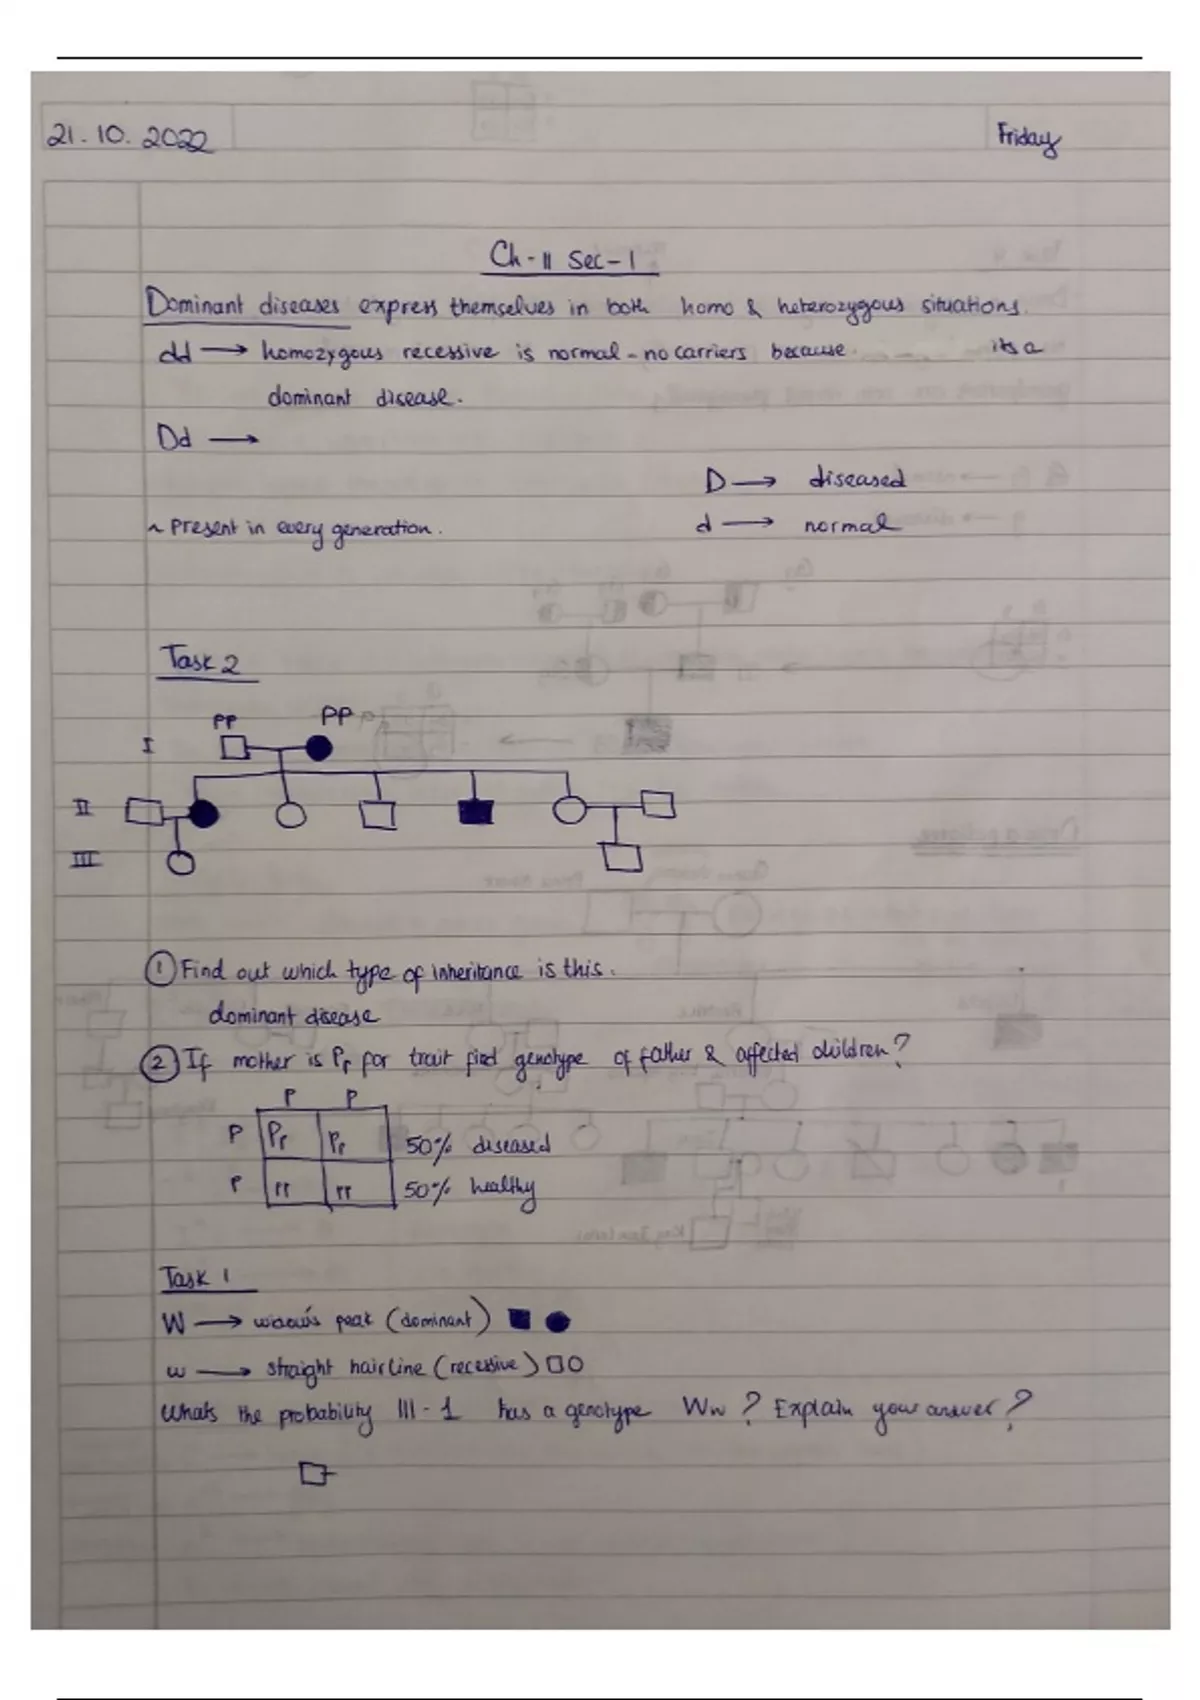 21.10.2022 Friday
Ch-11 Sec-1
Dominant diseases express themselves in both homo & heterozygous situations.
dd → homozygous recessive is normal - no carriers because its a
dominant disease.
Dd →
D → diseased
~ Present in every generation. d → normal
Task 2
PP PP
I
II
III
① Find out which type of inheritance is this.
dominant disease
② If mother is Pp for trait find genotype of father & affected children?
P P
P Pp Pp 50% diseased
P PP PP 50% healthy
Task 1
W → widow's peak (dominant)
w → straight hairline (recessive)
Whats the probability III-1 has a genotype Ww? Explain your answer?